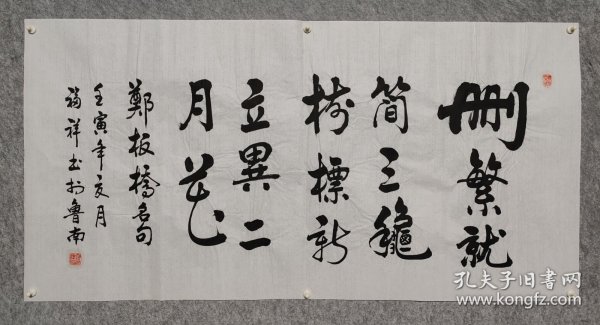 刪繁就
簡三龝
樹標新
立異二
月花
鄭板橋名句
壬寅年亥月
福祥书於魯南
孔夫子旧书网
www.kongfz.com